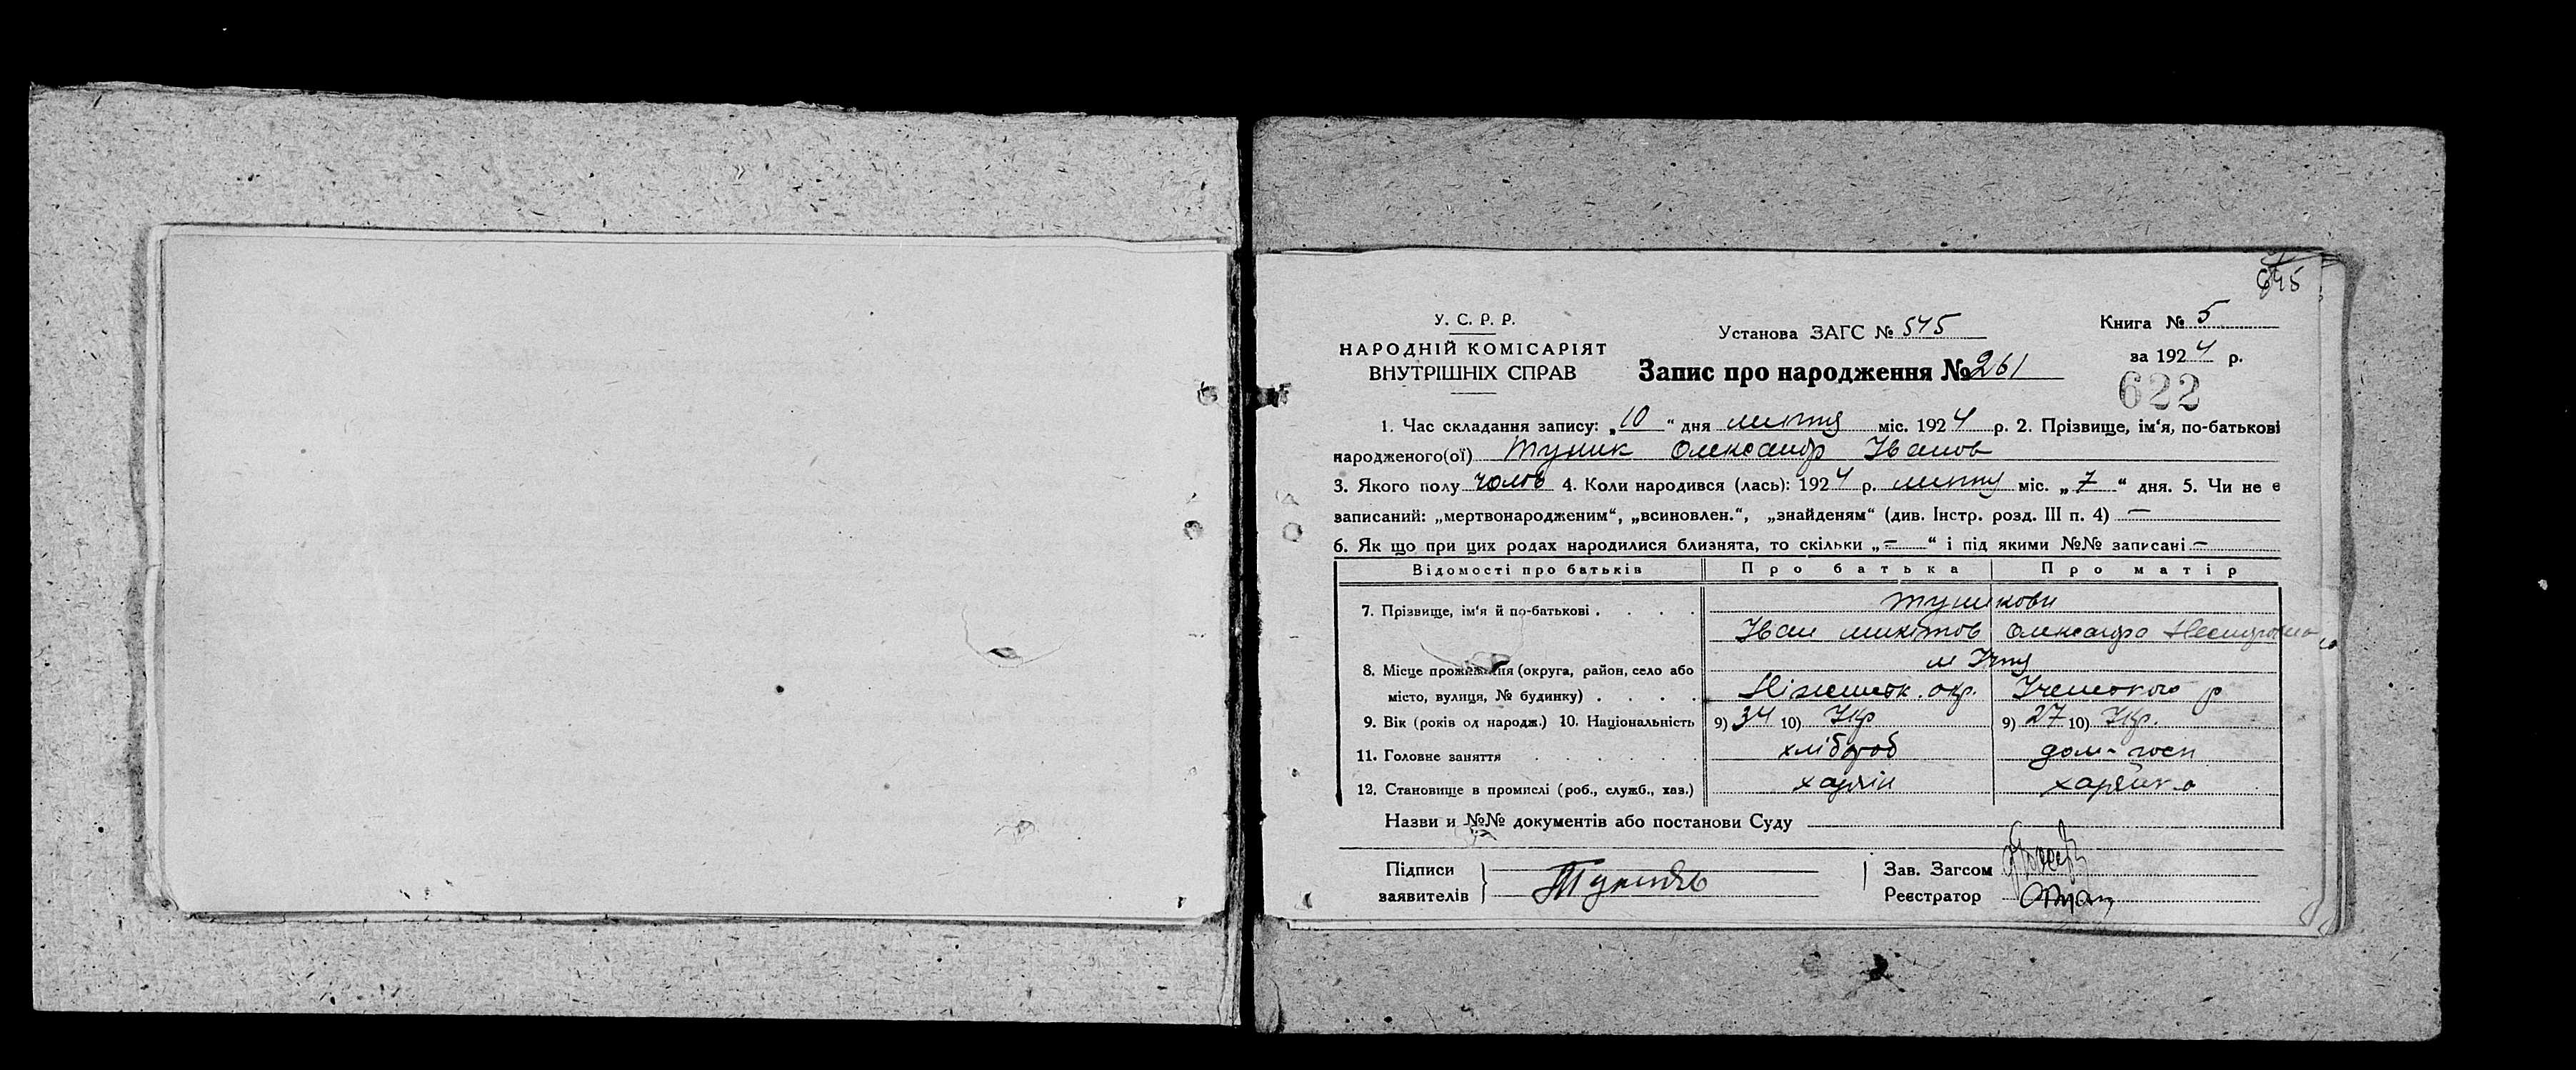 645
У. С. Р. Р.
НАРОДНІЙ КОМІСАРІЯТ
ВНУТРІШНІХ СПРАВ
Установа ЗАГС № 545
Книга № 5
за 1924 р.
Запис про народження № 261
622
1. Час складання запису: „10“ дня лютня міс. 1924 р. 2. Прізвище, ім'я, по-батькові
народженого(ої) Туник Олександр Іванов
3. Якого полу чолов 4. Коли народився (лась): 1924 р. лютня міс. „7“ дня. 5. Чи не є
записаний: „мертвонародженим“, „всиновлен.“, „знайденям“ (див. Інстр. розд. III п. 4) —
6. Як що при цих родах народилися близнята, то скільки „—“ і під якими №№ записані —
Відомості про батьків Про батька Про матір
7. Прізвище, ім'я й по-батькові . . . . Туникови
Іван Микитов Олександра
8. Місце прожив ння (округа, район, село або м Ічня
місто, вулиця, № будинку) . . . . Ніженськ. окр. Іченського р
9. Вік (років од народж.) 10. Національність 9) 34 10) Укр 9) 27 10) Укр.
11. Головне заняття . . . . . . хлібороб дом-госп
12. Становище в промислі (роб., служб., хаз.) хазяїн хазяйка
Назви и №№ документів або постанови Суду
Підписи
заявителів
Зав. Загсом
Реєстратор